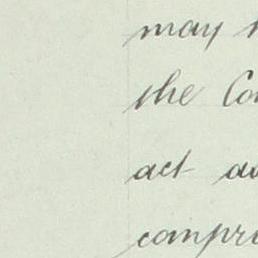 may
the Co
act a
compri